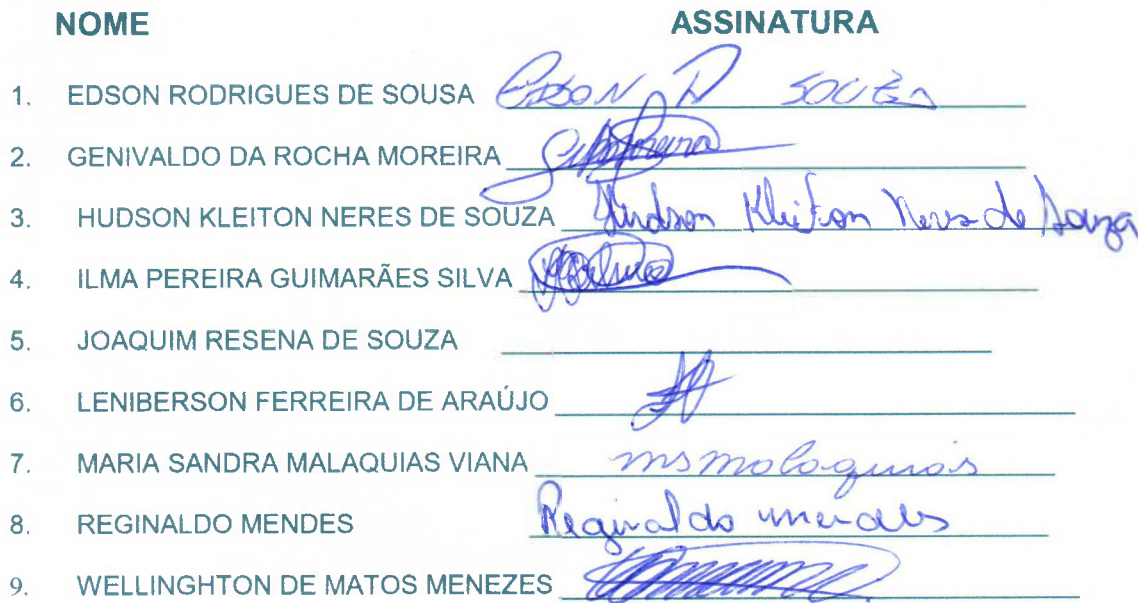 NOME ASSINATURA
1. EDSON RODRIGUES DE SOUSA EDSON R SOUZA
2. GENIVALDO DA ROCHA MOREIRA
3. HUDSON KLEITON NERES DE SOUZA Hudson Kleiton Neres de Souza
4. ILMA PEREIRA GUIMARÃES SILVA
5. JOAQUIM RESENA DE SOUZA
6. LENIBERSON FERREIRA DE ARAÚJO
7. MARIA SANDRA MALAQUIAS VIANA msmalaquias
8. REGINALDO MENDES Reginaldo mendes
9. WELLINGHTON DE MATOS MENEZES